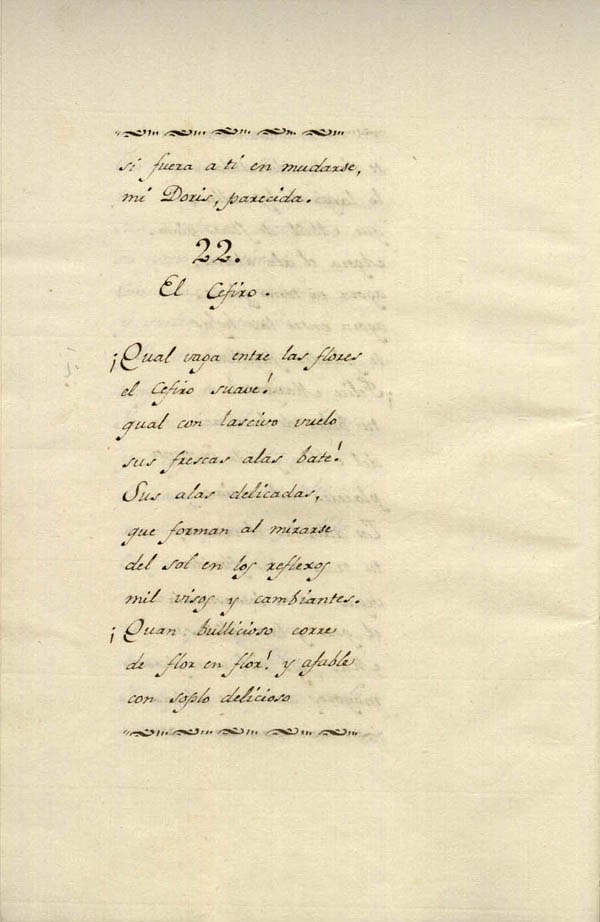 si fuera a tí en mudarse,
mi Doris, parecida.
22.
El Cefiro.
¡Qual vaga entre las flores
el Cefiro suave!
qual con lascivo vuelo
sus frescas alas bate!
Sus alas delicadas,
que forman al mirarse
del sol en los reflexos
mil visos y cambiantes.
¡Quan bullicioso corre
de flor en flor! y afable
con soplo delicioso